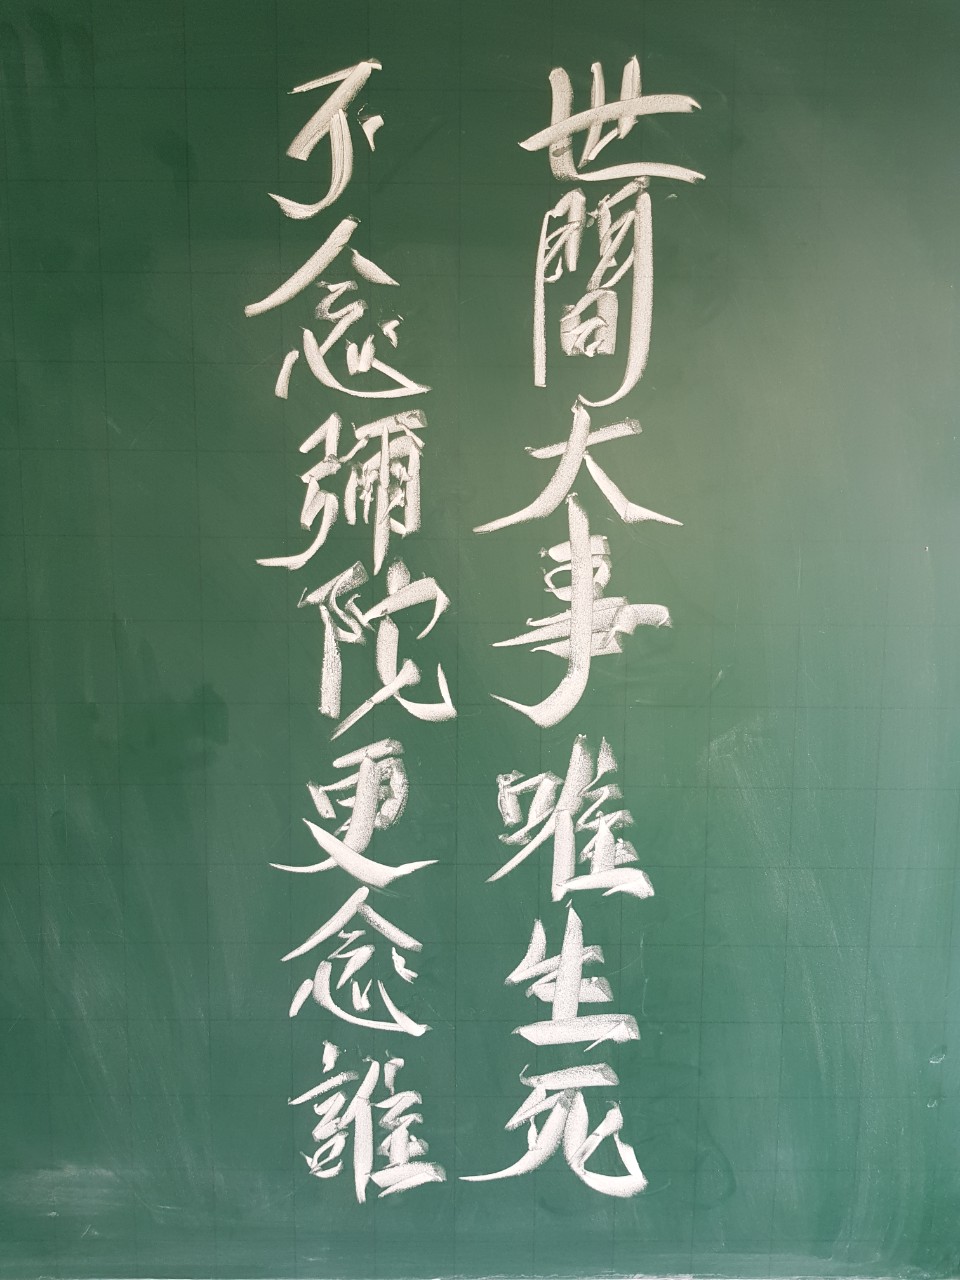 世間大事唯生死
不念彌陀更念誰